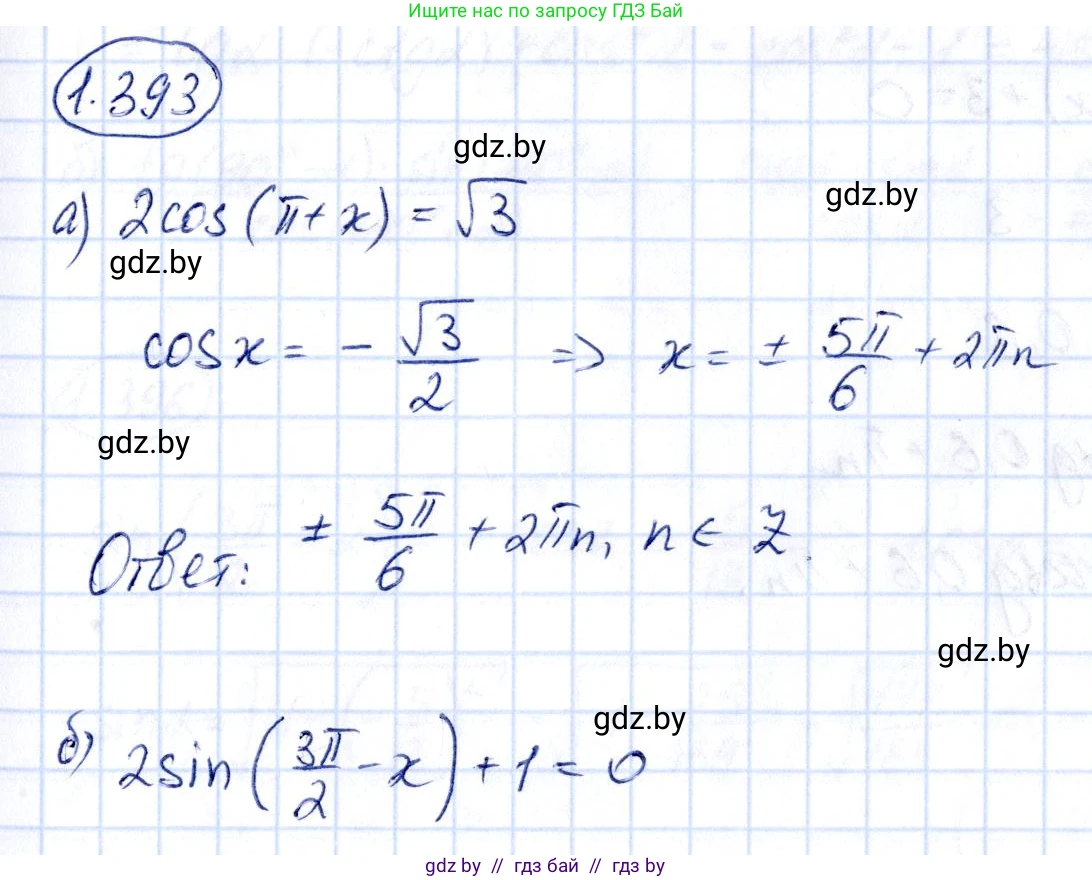 Ищите нас по запросу ГДЗ Бай
1.393
gdz.by
gdz.by
а) 2cos(π+x) = √3
gdz.by
cosx = - √3/2 => x = ± 5π/6 + 2πn
gdz.by
Ответ: ± 5π/6 + 2πn, n ∈ Z.
gdz.by
gdz.by
б) 2sin(3π/2 - x) + 1 = 0
gdz by // гдз бай // гдз by